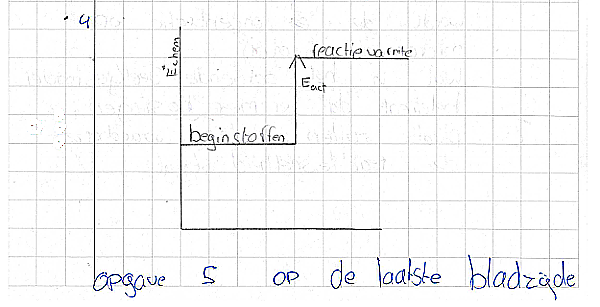 4
reactiewarmte
Echem
Eact
beginstoffen
opgave 5 op de laatste bladzijde